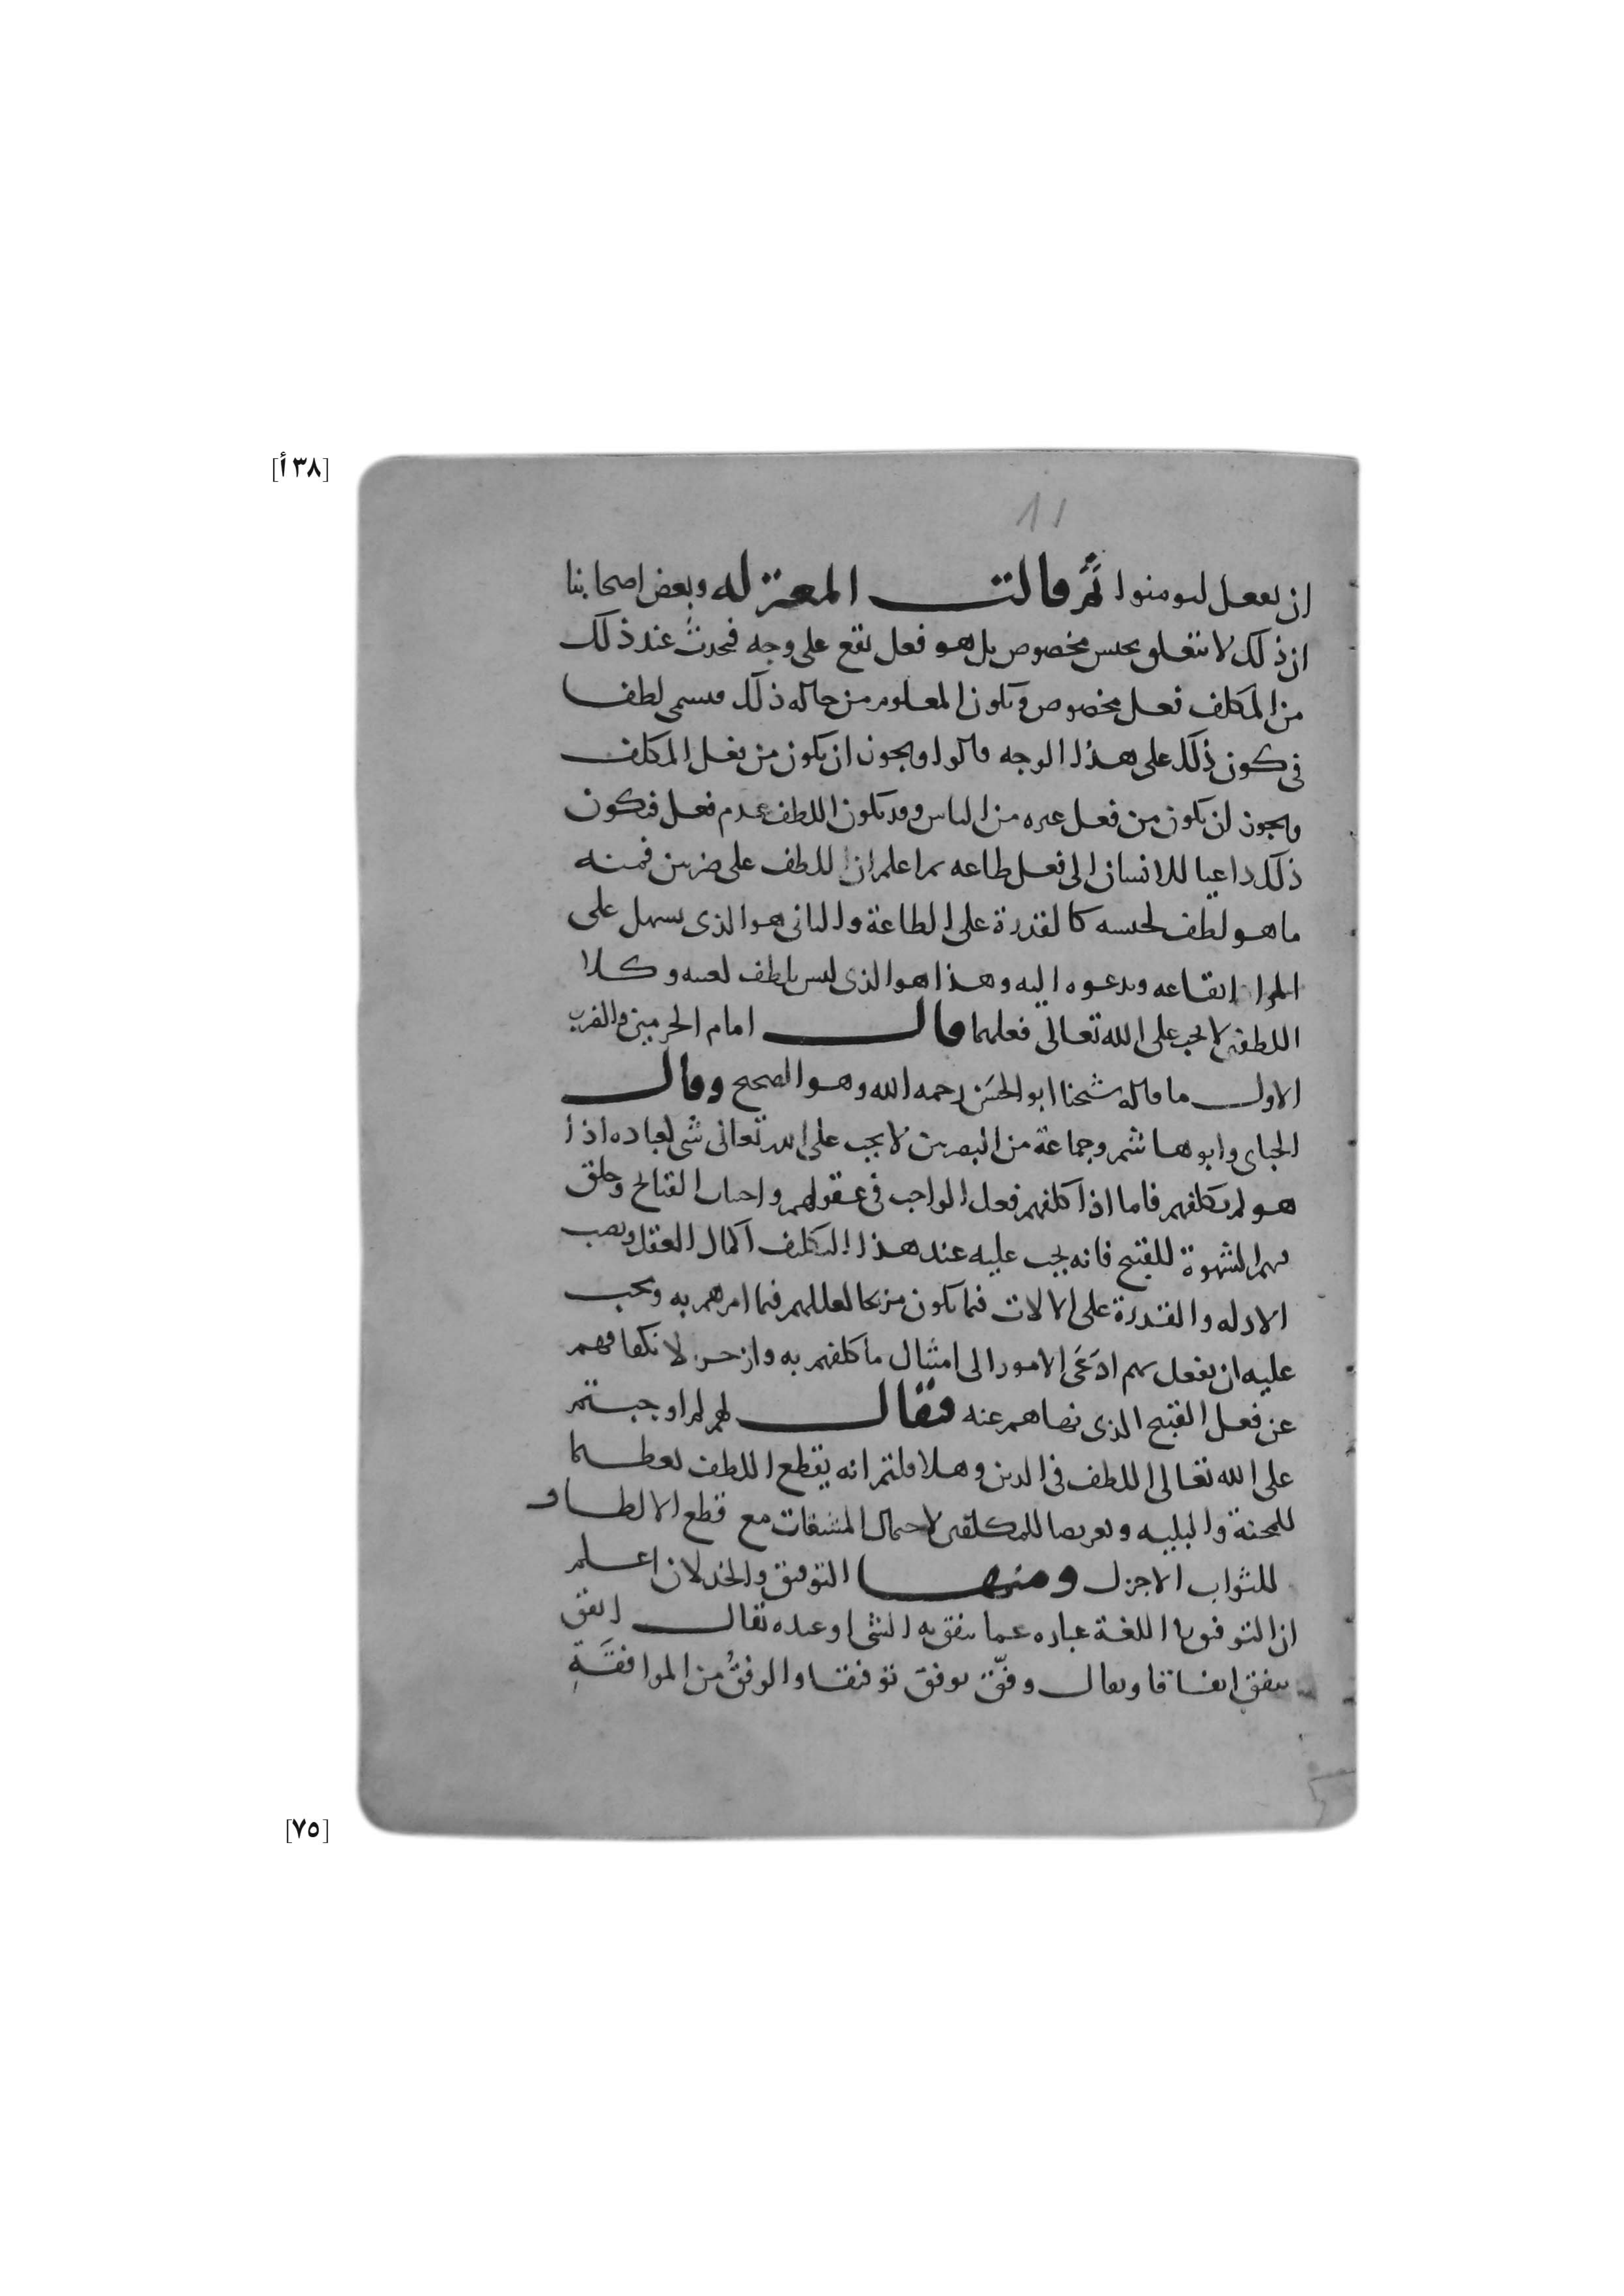 [٣٨ أ]
ان يفعل ليومنوا ثم قالت المعتزله وبعض اصحابنا
ان ذلك لا يتعلق بجنس مخصوص بل هو فعل يقع على وجه فيحدث عند ذلك
من المكلف فعل مخصوص ويكون المعلوم من حاله ذلك فيسمى لطفا
في كون ذلك على هذا الوجه قالوا ويجوز ان يكون من فعل المكلف
ويجوز ان يكون من فعل غيره من الناس وقد يكون اللطف عدم فعل فيكون
ذلك داعيا للانسان الى فعل طاعه ثم اعلم ان اللطف على ضربين فمنه
ما هو لطف لجنسه كالقدرة على الطاعة والثاني هو الذي يسهل على
المرا ايقاعه ويدعوه اليه وهذا هو الذي ليس بلطف لعينه وكلا
اللطفين لا يجب على الله تعالى فعلهما قال امام الحرمين والضرب
الاول ما قاله شيخنا ابو الحسَن رحمه الله وهو الصحيح وقال
الجباي وابو هاشم وجماعة من البصريين لا يجب على الله تعالى شي لعباده اذا
هو لم يكلفهم فاما اذا كلفهم فعل الواجب في عقولهم واجتناب القبائح وخلق
فيهم الشهوة للقبيح فانه يجب عليه عند هذا التكليف اكمال العقل ونصب
الادله والقدرة على الالات فيما يكون مزيحا لعللهم فيما امرهم به ويجب
عليه ان يفعل بهم ادعَى الامور الى امتثال ما كلفهم به وازجر لانكفافهم
عن فعل القبيح الذي نهاهم عنه فيقال لهم لم اوجبتم
على الله تعالى اللطف في الدين وهلا قلتم انه يقطع اللطف تعظيما
للمحنة والبليه وتعريضا للمكلفين لاحتمال المشقات مع قطع الالطاف
للثواب الاجزل ومنها التوفيق والخذلان اعلم
ان التوفيق في اللغة عباره عما يتفق به الشي او عنده يقال اتفق
يتفق اتفاقا ويقال وفّق يوفق توفيقا والوفقُ من الموافقَةِ
[٧٥]